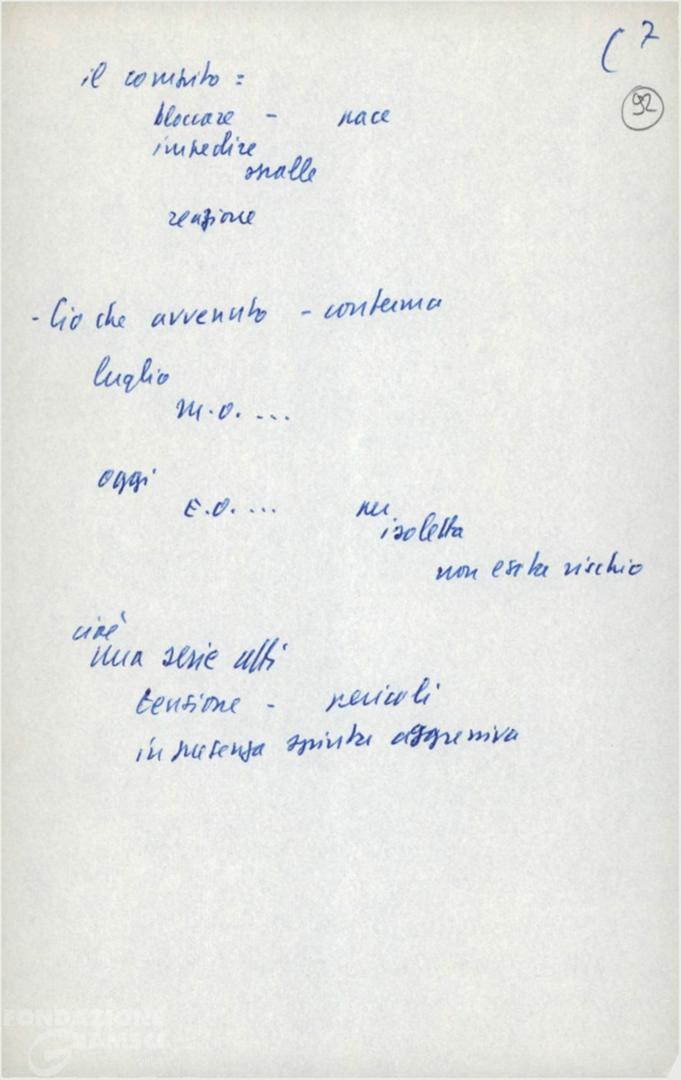 ( 7
92
il compito =
bloccare - pace
impedire
spalle
reazione
- Ciò che avvenuto - conferma
luglio
M.O. ...
oggi
E.O. ... per
isoletta
non esita rischio
cioè
una serie atti
tensione - pericoli
in presenza spinta aggressiva
FONDAZIONE
GRAMSCI